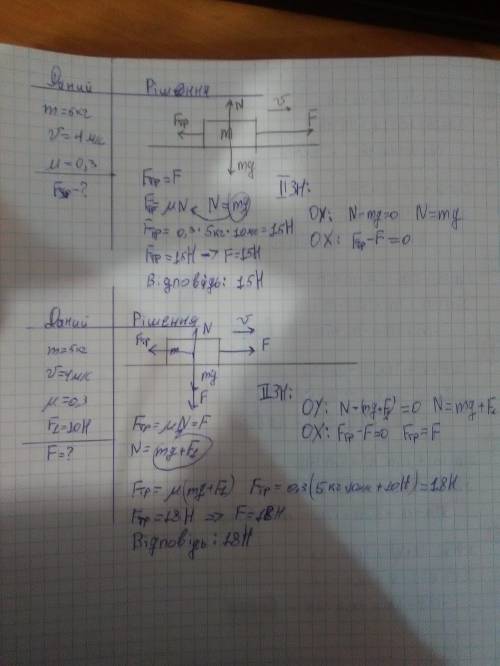 Даний Рішення
m=5кг
v=4мс
μ=0,3
Fтр-?
N v
Fтр m F
mg
Fтр=F
Fтр=μN N=mg
Fтр=0,3·5кг·10мс=15Н
Fтр=15Н → F=15Н
Відповідь: 15Н
ІІЗН:
OX: N-mg=0 N=mg
OX: Fтр-F=0
Даний Рішення
m=5кг
v=4мс
μ=0,3
F2=10Н
F=?
N v
Fтр m F
mg
F
Fтр=μN=F
N=mg+F2
ІІЗН:
OY: N-(mg+F2)=0 N=mg+F2
OX: Fтр-F=0 Fтр=F
Fтр=μ(mg+F2) Fтр=0,3(5кг·10мс+10Н)=18Н
Fтр=18Н => F=18Н
Відповідь: 18Н